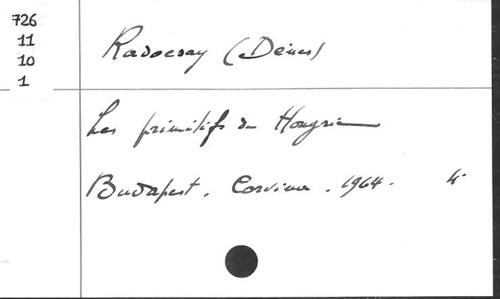 726
11
10
1
Radocsay (Dénes)
Les primitifs de Hongrie
Budapest. Corvina. 1964. 4°